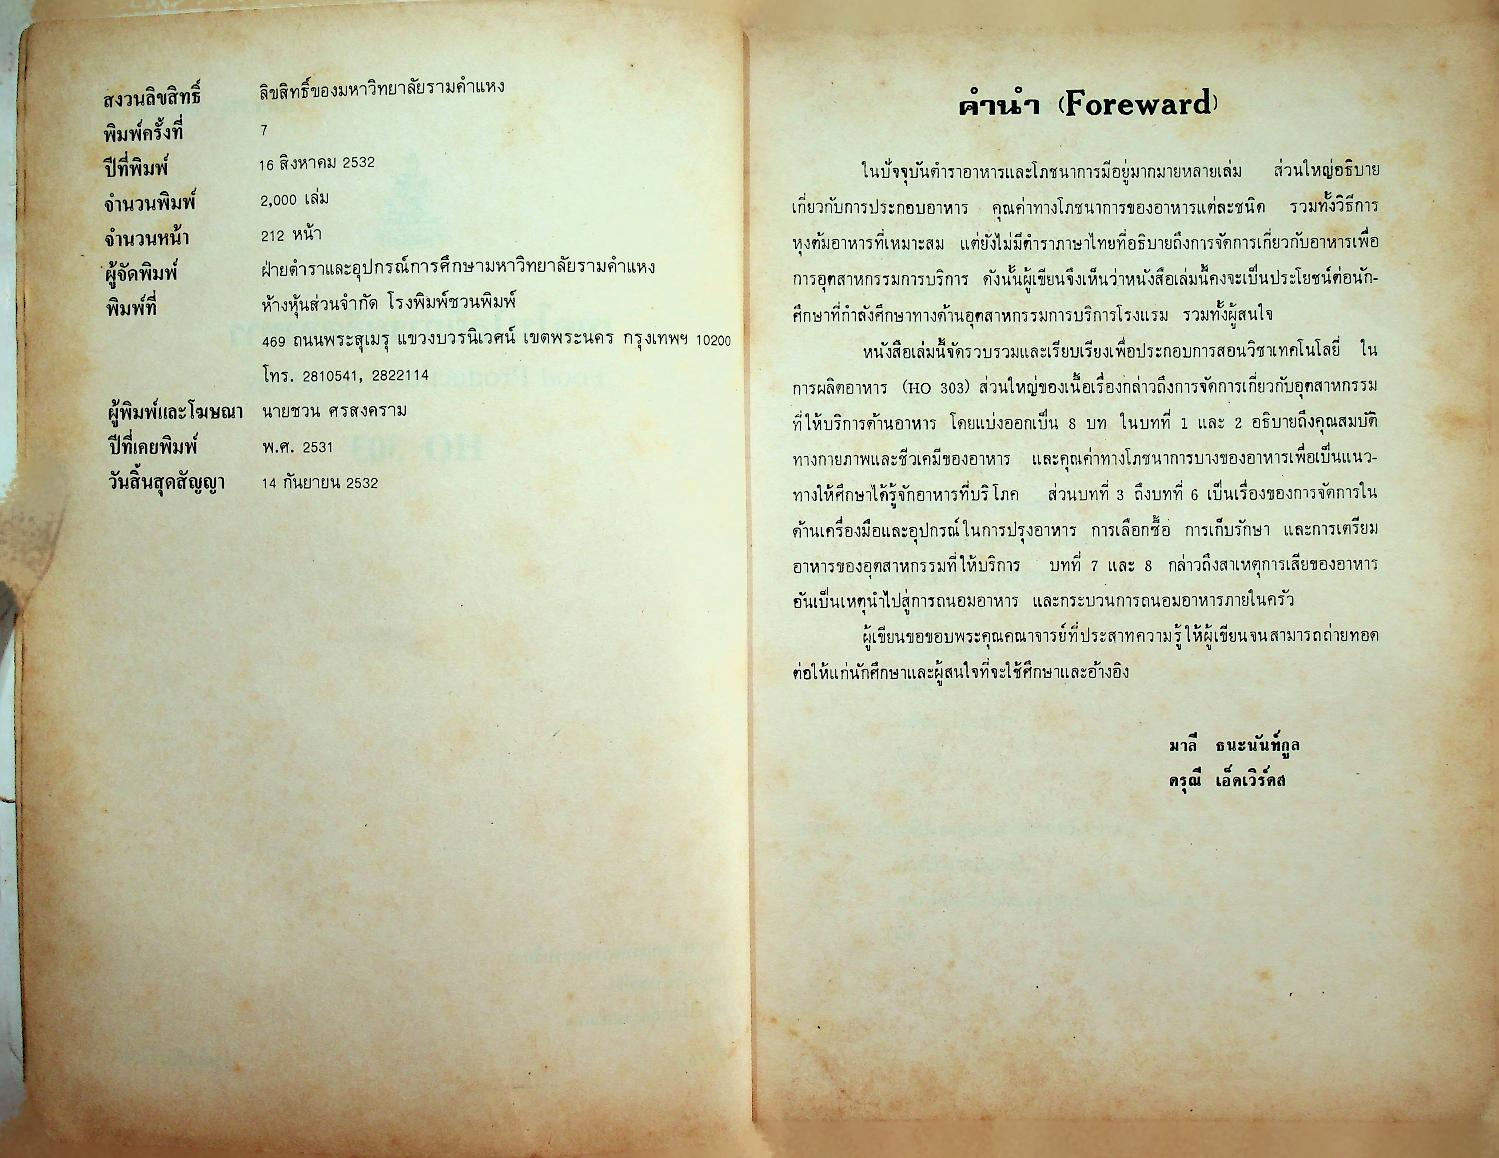 สงวนลิขสิทธิ์ ลิขสิทธิ์ของมหาวิทยาลัยรามคำแหง
พิมพ์ครั้งที่ 7
ปีที่พิมพ์ 16 สิงหาคม 2532
จำนวนพิมพ์ 2,000 เล่ม
จำนวนหน้า 212 หน้า
ผู้จัดพิมพ์ ฝ่ายตำราและอุปกรณ์การศึกษามหาวิทยาลัยรามคำแหง
พิมพ์ที่ ห้างหุ้นส่วนจำกัด โรงพิมพ์ชวนพิมพ์
469 ถนนพระสุเมรุ แขวงบวรนิเวศน์ เขตพระนคร กรุงเทพฯ 10200
โทร. 2810541, 2822114
ผู้พิมพ์และโฆษณา นายชวน ศรสงคราม
ปีที่เคยพิมพ์ พ.ศ. 2531
วันสิ้นสุดสัญญา 14 กันยายน 2532
คำนำ (Foreward)
ในปัจจุบันตำราอาหารและโภชนาการมีอยู่มากมายหลายเล่ม ส่วนใหญ่อธิบาย
เกี่ยวกับการประกอบอาหาร คุณค่าทางโภชนาการของอาหารแต่ละชนิด รวมทั้งวิธีการ
หุงต้มอาหารที่เหมาะสม แต่ยังไม่มีตำราภาษาไทยที่อธิบายถึงการจัดการเกี่ยวกับอาหารเพื่อ
การอุตสาหกรรมการบริการ ดังนั้นผู้เขียนจึงเห็นว่าหนังสือเล่มนี้คงจะเป็นประโยชน์ต่อนัก-
ศึกษาที่กำลังศึกษาทางด้านอุตสาหกรรมการบริการโรงแรม รวมทั้งผู้สนใจ
หนังสือเล่มนี้จัดรวบรวมและเรียบเรียงเพื่อประกอบการสอนวิชาเทคโนโลยี่ ใน
การผลิตอาหาร (HO 303) ส่วนใหญ่ของเนื้อเรื่องกล่าวถึงการจัดการเกี่ยวกับอุตสาหกรรม
ที่ให้บริการด้านอาหาร โดยแบ่งออกเป็น 8 บท ในบทที่ 1 และ 2 อธิบายถึงคุณสมบัติ
ทางกายภาพและชีวเคมีของอาหาร และคุณค่าทางโภชนาการบางของอาหารเพื่อเป็นแนว-
ทางให้ศึกษาได้รู้จักอาหารที่บริโภค ส่วนบทที่ 3 ถึงบทที่ 6 เป็นเรื่องของการจัดการใน
ด้านเครื่องมือและอุปกรณ์ในการปรุงอาหาร การเลือกซื้อ การเก็บรักษา และการเตรียม
อาหารของอุตสาหกรรมที่ให้บริการ บทที่ 7 และ 8 กล่าวถึงสาเหตุการเสียของอาหาร
อันเป็นเหตุนำไปสู่การถนอมอาหาร และกระบวนการถนอมอาหารภายในครัว
ผู้เขียนขอขอบพระคุณคณาจารย์ที่ประสาทความรู้ให้ผู้เขียนจนสามารถถ่ายทอด
ต่อให้แก่นักศึกษาและผู้สนใจที่จะใช้ศึกษาและอ้างอิง
มาลี ธนะนันท์กูล
ดรุณี เอ็ดเวิร์ดส